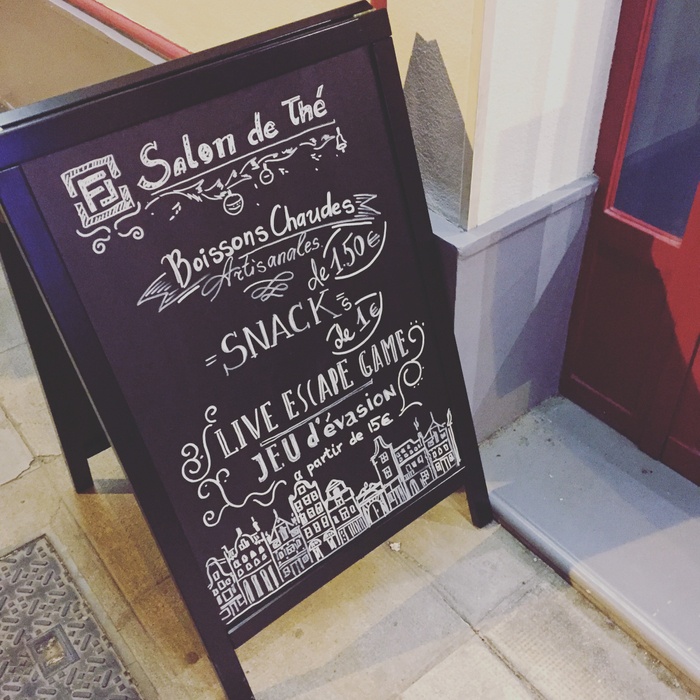 Salon de Thé
Boissons Chaudes
Artisanales
de 1.50€
SNACK
de 1€
LIVE ESCAPE GAME
JEU d'évasion
a partir de 15€